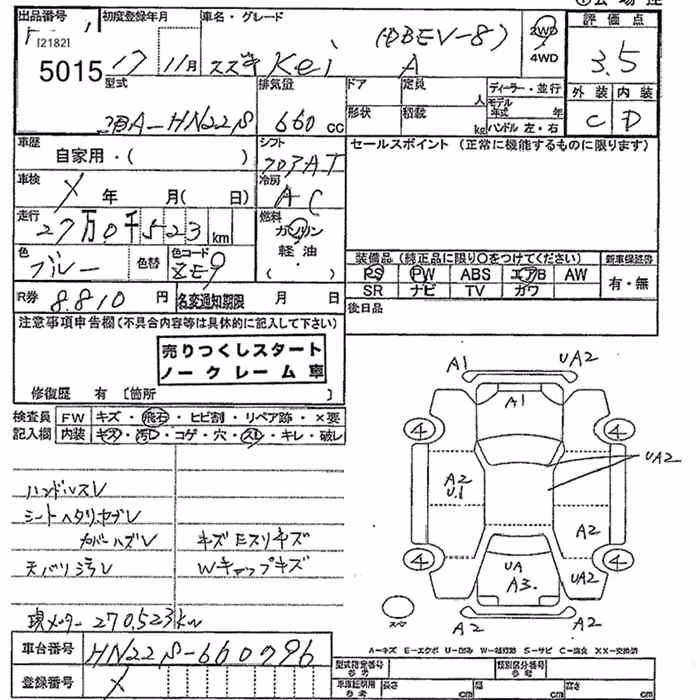 出品番号 初度登録年月 車名・グレード (DBEV-8) 2WD 評価点
[2182] 17 11月 スズキ Kei A 4WD 3.5
5015
型式 排気量 ドア 定員 人 ディーラー・並行 外装 内装
HN22S 660cc 形状 積載 kg モデル年式 年 C D
ハンドル 左・右
車歴 シフト セールスポイント (正常に機能するものに限ります)
自家用・( ) フロアAT
車検 冷房
X 年 月( 日) AC
走行 燃料
27万0千523km ガソリン
軽油
( )
色 色替 色コード 装備品 (純正品に限り〇をつけてください) 新車保証書
ブルー ZE9 PS PW ABS エアB AW 有・無
SR ナビ TV カワ
R券 8.810円 名変通知期限 月 日 後日品
注意事項申告欄(不具合内容等は具体的に記入して下さい)
売りつくしスタート
ノークレーム車
修復歴 有 [箇所 ]
検査員 FW キズ・飛石・ヒビ割・リペア跡・×要
記入欄 内装 キズ・汚レ・コゲ・穴・スレ・キレ・破レ
ハンドルスレ
シートヘタリ、ヤブレ
カバーハズレ キズ E スリキズ
天バリ汚レ Wキャップキズ
現メーター 270,523km
車台番号 HN22S-660796
登録番号 X
A1 UA2
A1
4 4
UA2
A2
U.1
A2
4 4
UA
A3.
UA2
スペア
A2 A2
A-キズ E-エクボ U-凹み W-補修跡 S-サビ C-腐食 XX-交換済
型式指定番号 参考 類別区分番号 参考
車庫証明用 参考 長さ cm 幅 cm 高さ cm